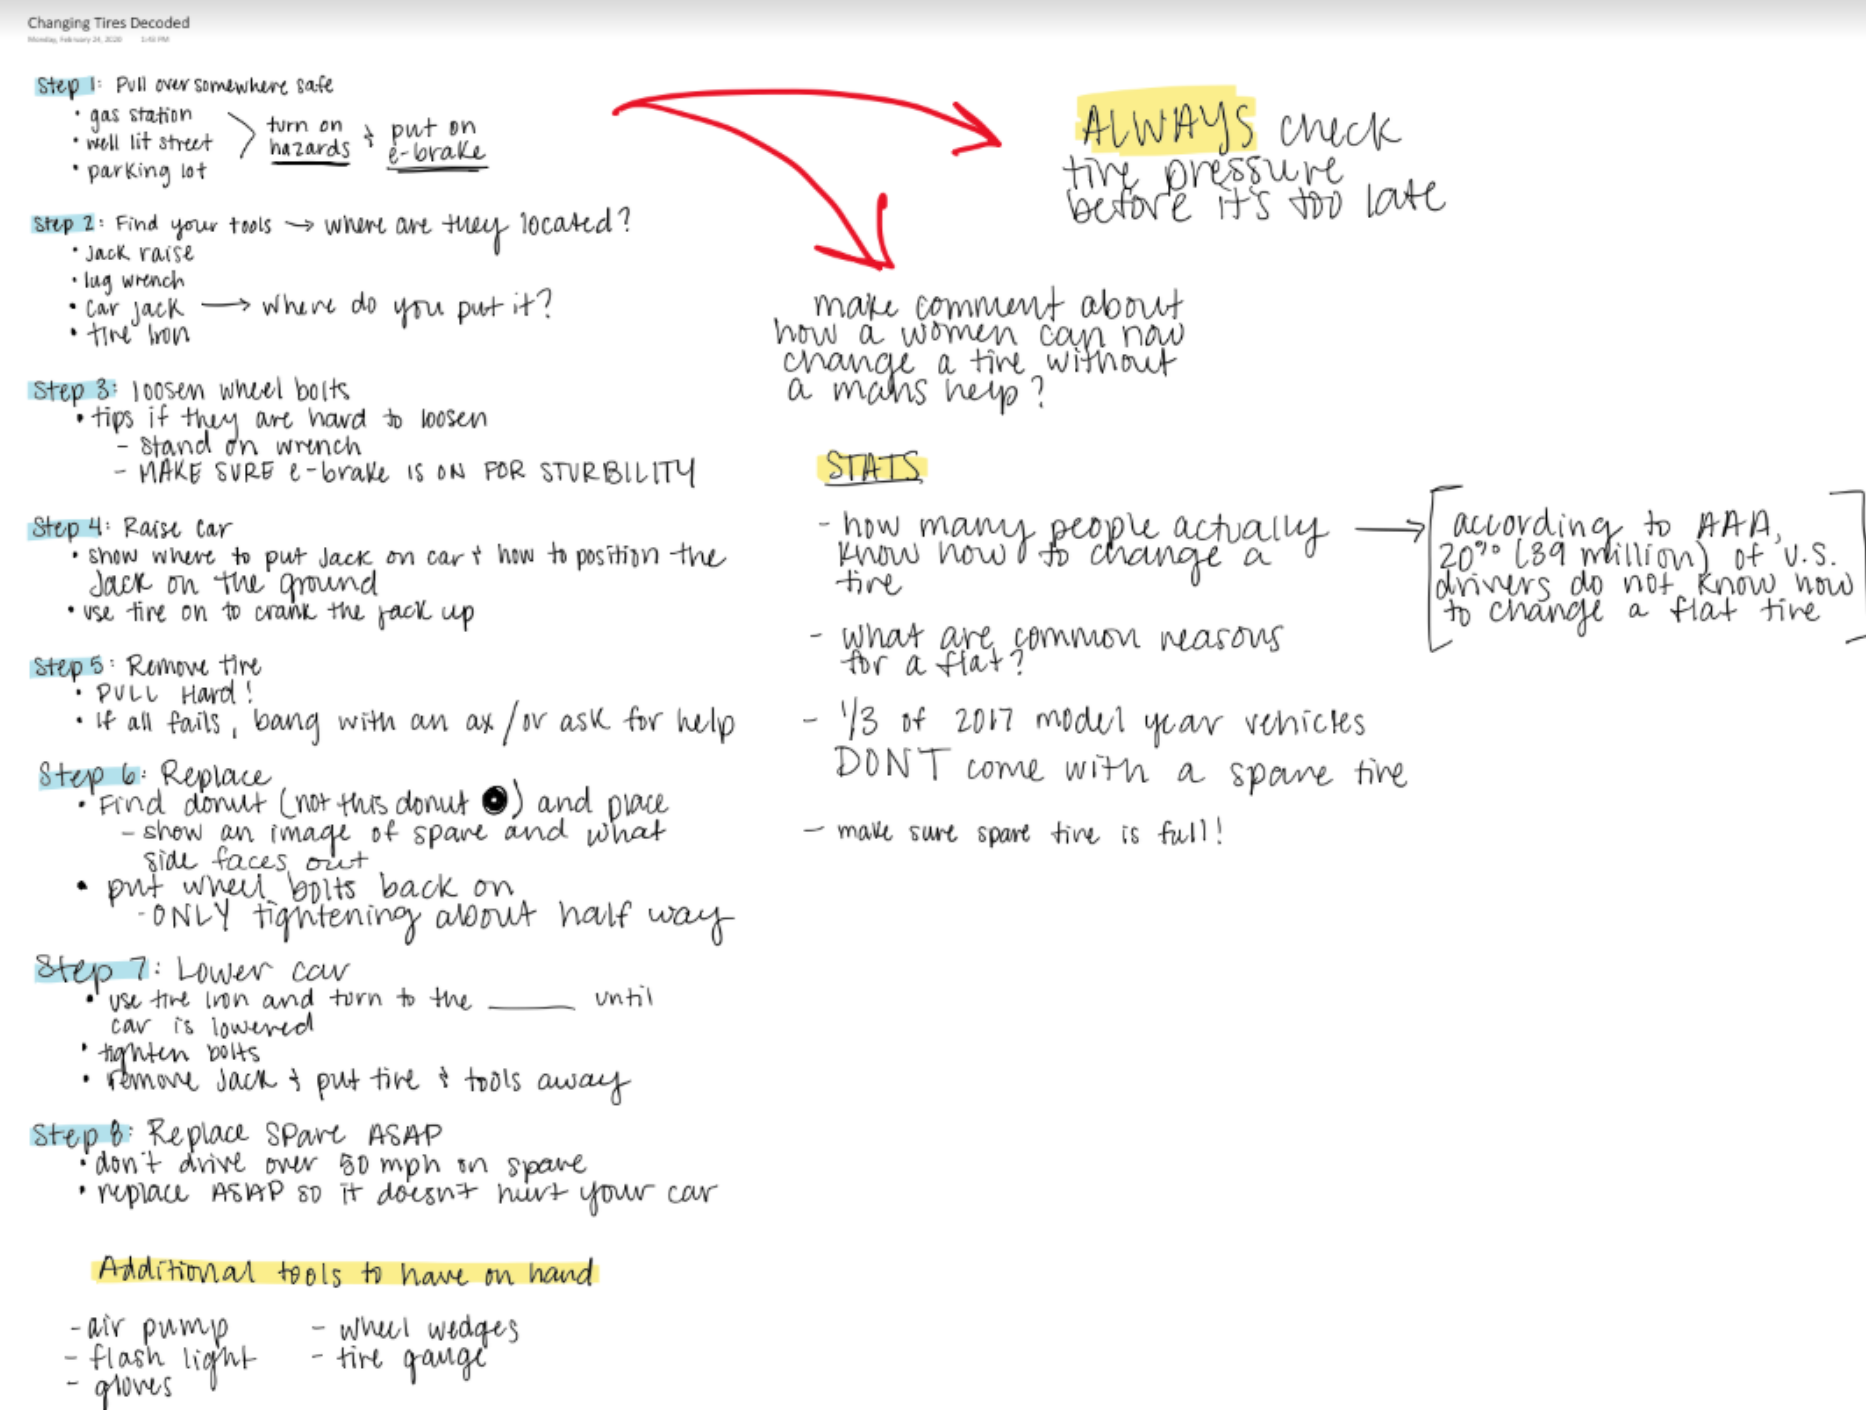 Changing Tires Decoded
Monday, February 24, 2020 1:43 PM
Step 1: Pull over somewhere safe
• gas station
• well lit street
• parking lot
turn on
hazards
& put on
e-brake
Step 2: Find your tools → where are they located?
• Jack raise
• lug wrench
• car jack → where do you put it?
• tire iron
Step 3: loosen wheel bolts
• tips if they are hard to loosen
- Stand on wrench
- MAKE SURE e-brake IS ON FOR STURBILITY
Step 4: Raise car
• show where to put Jack on car & how to position the
Jack on the ground
• use tire on to crank the jack up
Step 5: Remove tire
• PULL Hard!
• if all fails, bang with an ax / or ask for help
Step 6: Replace
• Find donut (not this donut ) and place
- show an image of spare and what
side faces out
• put wheel bolts back on
- ONLY tightening about half way
Step 7: Lower car
• use tire iron and turn to the ______ until
car is lowered
• tighten bolts
• remove Jack & put tire & tools away
Step 8: Replace Spare ASAP
• don't drive over 50 mph on spare
• replace ASAP so it doesn't hurt your car
Additional tools to have on hand
- air pump
- flash light
- gloves
- wheel wedges
- tire gauge
ALWAYS check
tire pressure
before it's too late
make comment about
how a women can now
change a tire without
a mans help?
STATS
- how many people actually
know how to change a
tire
→ [according to AAA,
20% (39 million) of U.S.
drivers do not know how
to change a flat tire]
- what are common reasons
for a flat?
- 1/3 of 2017 model year vehicles
DON'T come with a spare tire
- make sure spare tire is full!